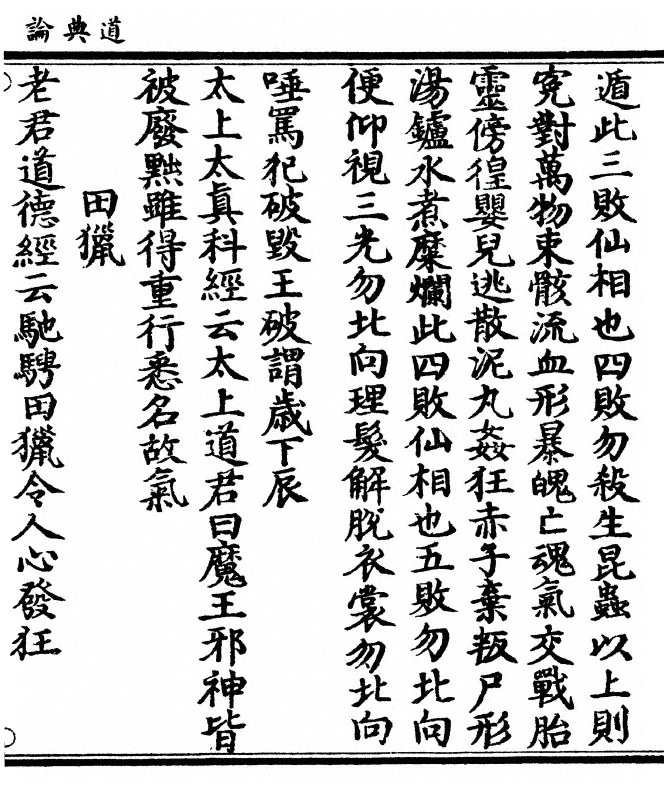 道典論
遁此三敗仙相也四敗勿殺生昆蟲以上則
寃對萬物束骸流血形暴魄亡魂氣交戰胎
靈傍徨嬰兒逃散泥丸姦狂赤子棄叛尸形
湯鑪水煮糜爛此四敗仙相也五敗勿北向
便仰視三光勿北向理髮解脫衣裳勿北向
唾罵犯破毀王破謂歲下辰
太上太真科經云太上道君曰魔王邪神皆
被廢黜雖得重行悉名故氣
田獵
老君道德經云馳騁田獵令人心發狂